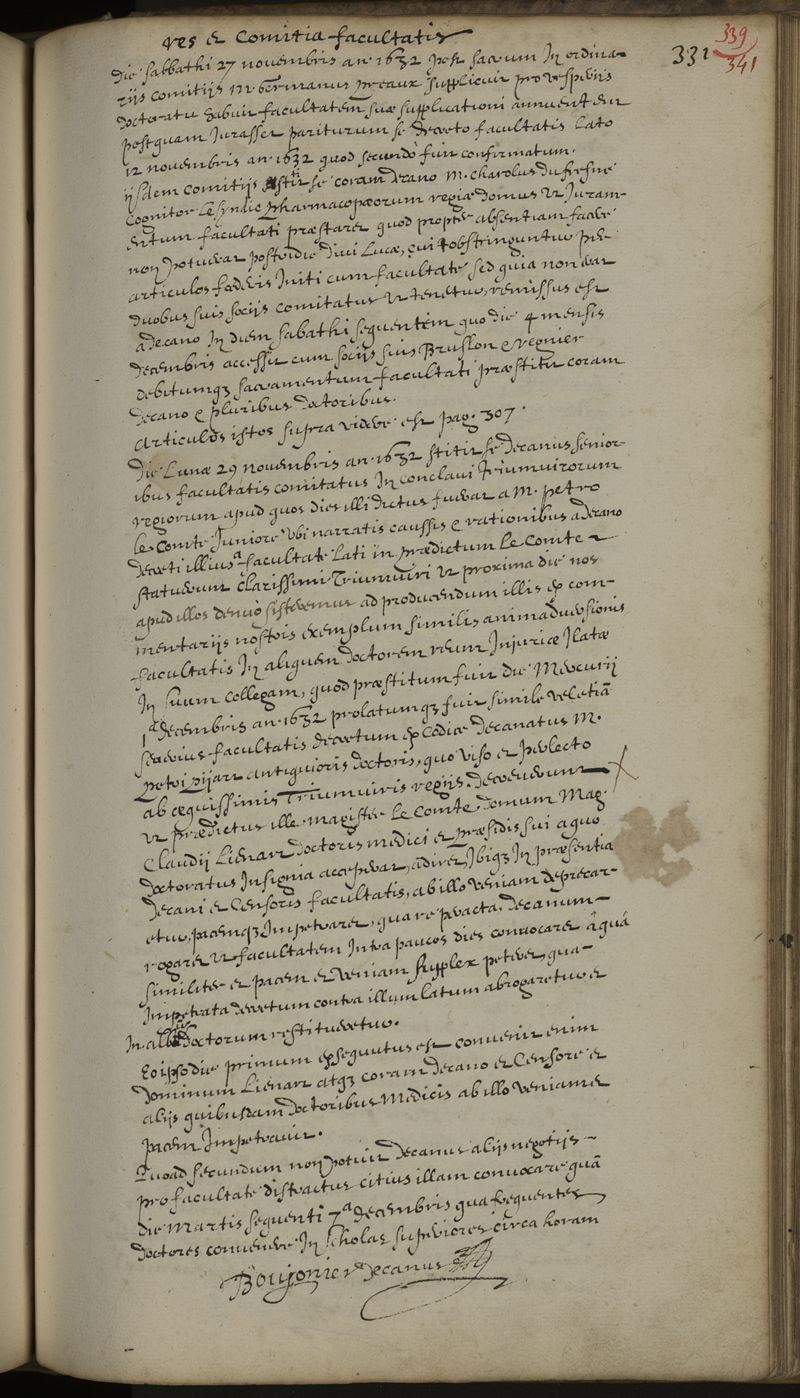 res et Comitia facultatis
339
331
341
Die sabbathi 27 novembris an. 1632 post sacrum In ordina-
rijs comitijs M. Germanus preaux supplicuit pro vesperijs
doctoratu habuit facultatem suæ supplicationi annuentem
postquam Jurasset pariturum se decreto facultatis lato
12 novembris an. 1632 quod secundò fuit confirmatum.
ijsdem comitijs stitit se coram decano M. Charolus du fresne
Cognitor le syndic pharmacopœorum regiæ domus ut Juram-
entum facultati præstaret quod propter absentiam facere
non potuerat postridie divi Lucæ, qui obstringuntur per
articulos fœderis Initi cum facultate sed quia non erat
duobus suis socijs comitatus ut tenetur, remissus est
a decano In diem sabathi sequentem quo die 4 mensis
decembris accessit cum socijs suis Brusson & regnier
debitumq3 sacramentum facultati præstitit coram
decano & pluribus doctoribus.
Articulos istos supra videre est pag. 307.
Die Lunæ 29 novembris an. 1632 stitit se decanus senior-
ibus facultatis comitatus In conclavi Triumvirorum
regiorum apud quos dies illi dictus fuerat a M. petro
le Comte Juniore ubi narratis caussis & rationibus a decano
decreti illius a facultate lati in prædictum le Comte
statuerunt clarissimi Triumviri ut proxima die nos
apud illos denuò sisteremus ad producendum illis ex com-
mentarijs nostris exemplum similis animadversionis
facultatis In aliquem doctorem reum Injuriæ Ilatæ
In suum collegam, quod præstitum fuit die Mercurij
1ª decembris an. 1632 prolatumq3 fuit simile
severius facultatis decretum ex codice decanatus M.
petri pijart antiquioris doctoris, quo viso et perlecto
ab æquissimis Triumviris regijs. decreverunt
ut prædictus ille magister le Comte, domum Mag.
Claudij Lienart doctoris medici et præsidis sui a quo
doctoratus Insignia acceperat, adiret, Ibiq3 In præsentia
decani et Censoris facultatis, ab illo veniam deprecar-
etur, pacemq3 Impetraret, qua re peracta, decanum
rogaret ut facultatem Intra paucos dies convocaret â quâ
similiter et pacem et veniam supplex peteret, qua
Impetrata decretum contra illum latum abrogaretur et
In albū doctorum restitueretur.
Eo ipso die primum exsequutus est convenit enim
dominum Lienart atq3 coram decano et Censore et
alijs quibusdam doctoribus Medicis ab illo veniam et
pacem Impetravit.
Quoad secundum non potuit decanus alijs negotijs
pro facultate distractus citius illam convocare quā
die Martis sequenti 7ª decembris qua frequentes
doctores convenere In scholas superiores circa horam
Boujonier decanus